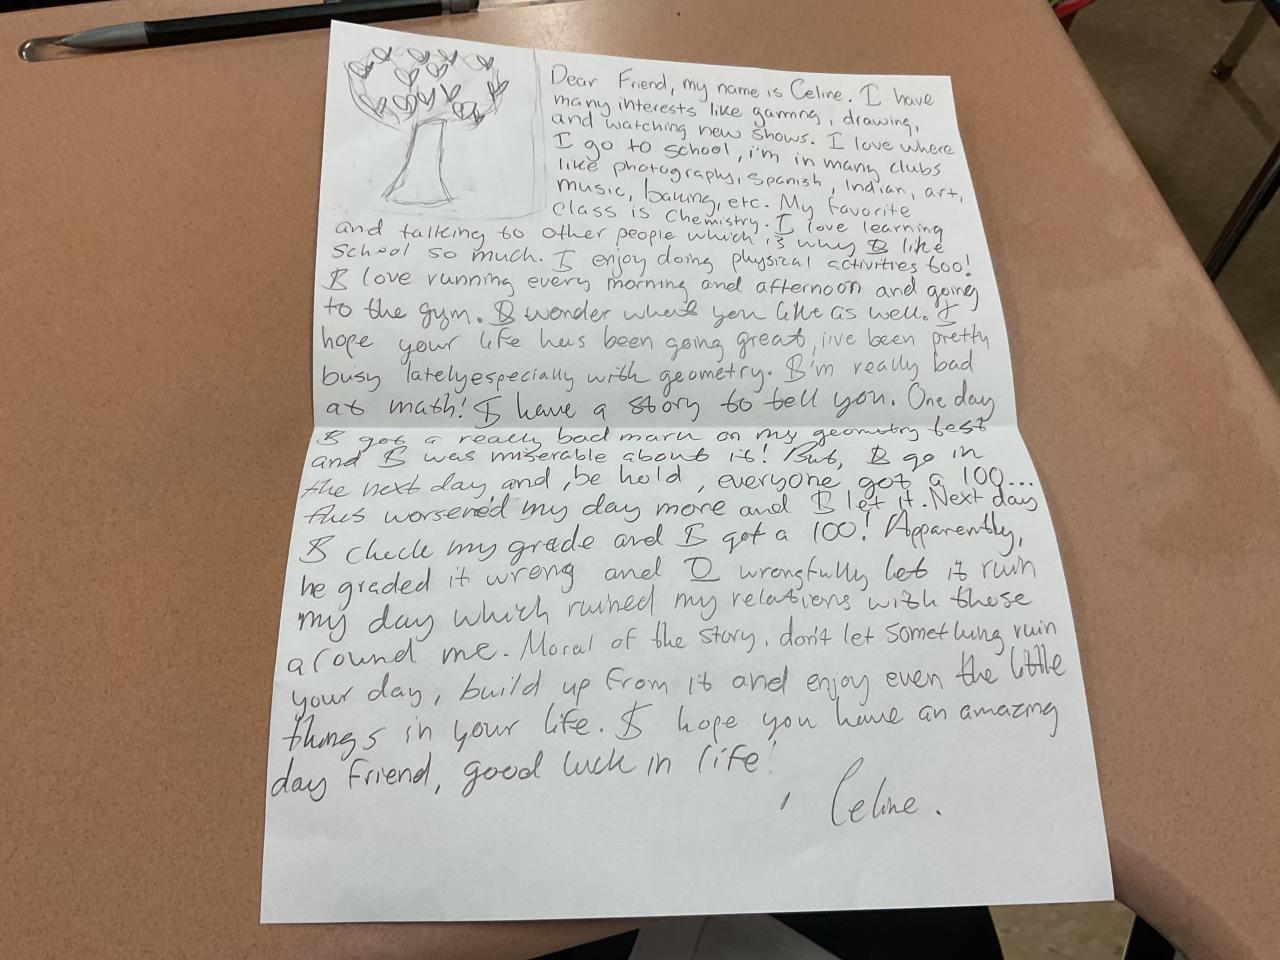 Dear Friend, my name is Celine. I have
many interests like gaming, drawing,
and watching new shows. I love where
I go to school, i'm in many clubs
like photography, Spanish, Indian, art,
music, baking, etc. My favorite
class is Chemistry. I love learning
and talking to other people which is why I like
school so much. I enjoy doing physical activities too!
I love running every morning and afternoon and going
to the gym. I wonder what you like as well. I
hope your life has been going great, i've been pretty
busy lately especially with geometry. I'm really bad
at math! I have a story to tell you. One day
I got a really bad mark on my geometry test
and I was miserable about it! But, I go in
the next day, and, be hold, everyone got a 100...
this worsened my day more and I let it. Next day
I check my grade and I got a 100! Apparently,
he graded it wrong and I wrongfully let it ruin
my day which ruined my relations with those
around me. Moral of the story, don't let something ruin
your day, build up from it and enjoy even the little
things in your life. I hope you have an amazing
day friend, good luck in life!
, Celine.